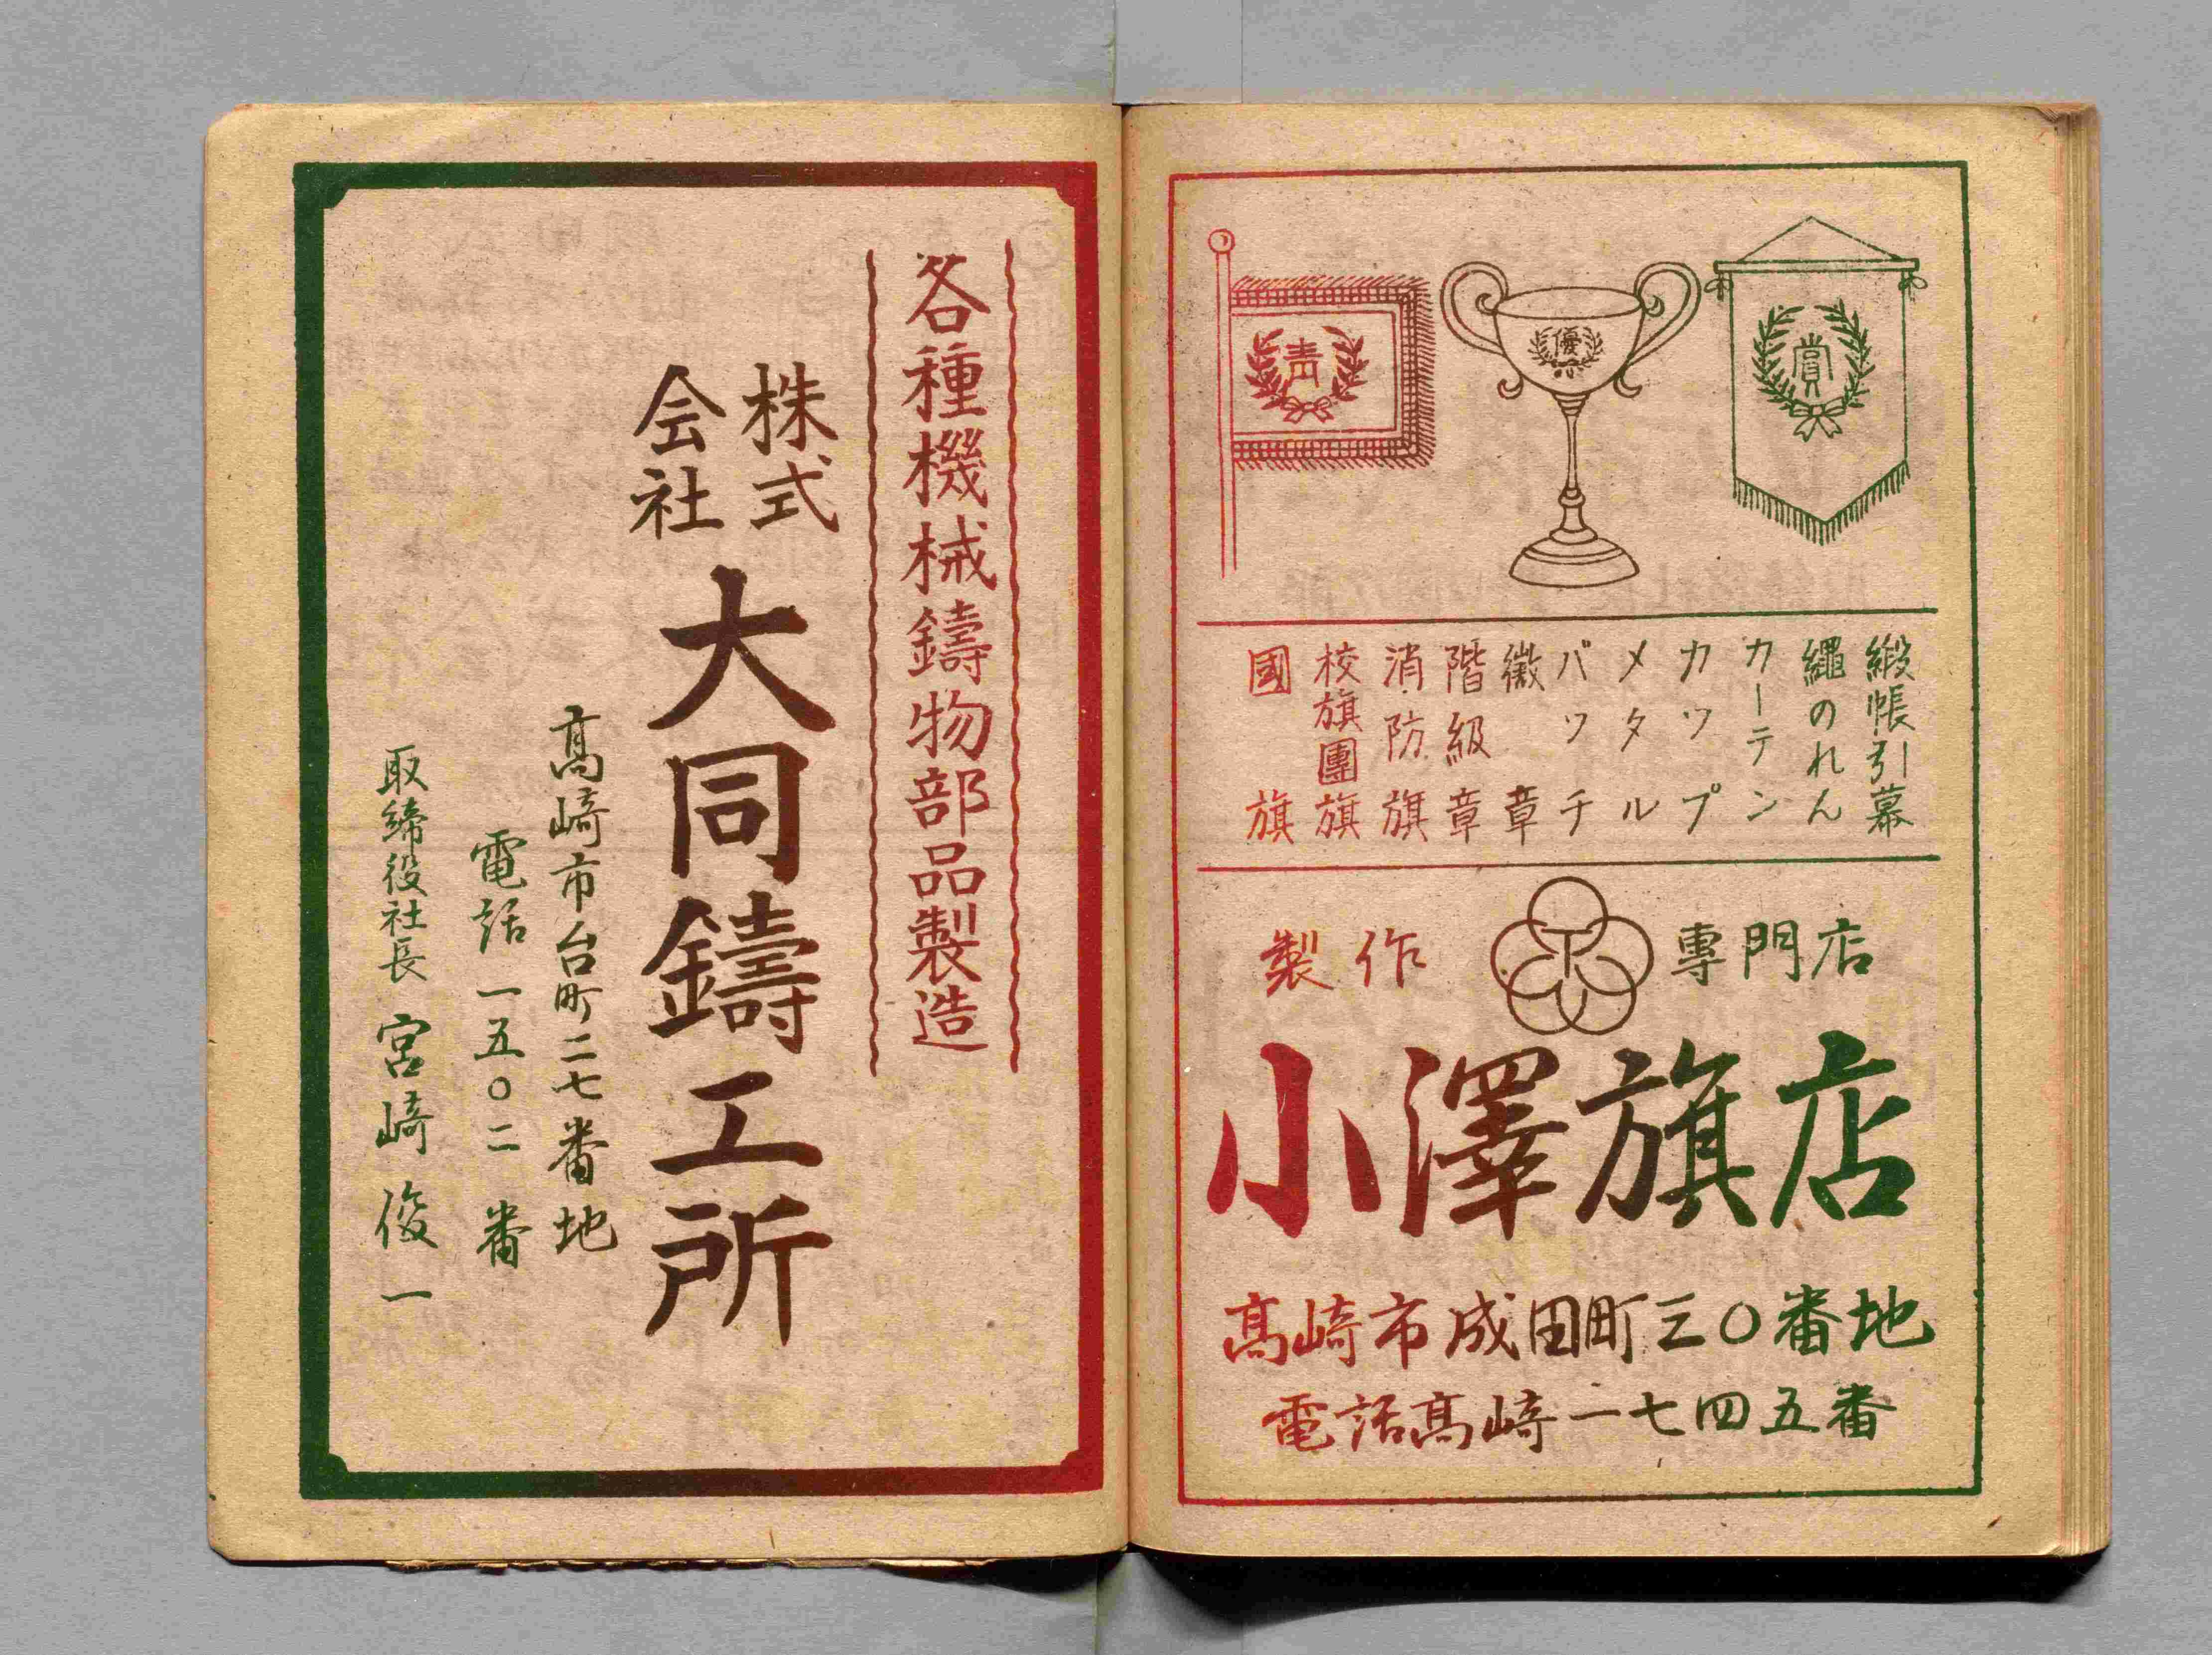 青
優
賞
緞帳引幕
繩のれん
カーテン
カツプ
メタル
バツチ
徽章
階級章
消防旗
校旗團旗
國旗
製作 專門店
小澤旗店
髙崎市成田町三〇番地
電話髙崎一七四五番
各種機械鑄物部品製造
株式会社 大同鑄工所
髙崎市台町二七番地
電話 一五〇二番
取締役社長 宮崎俊一